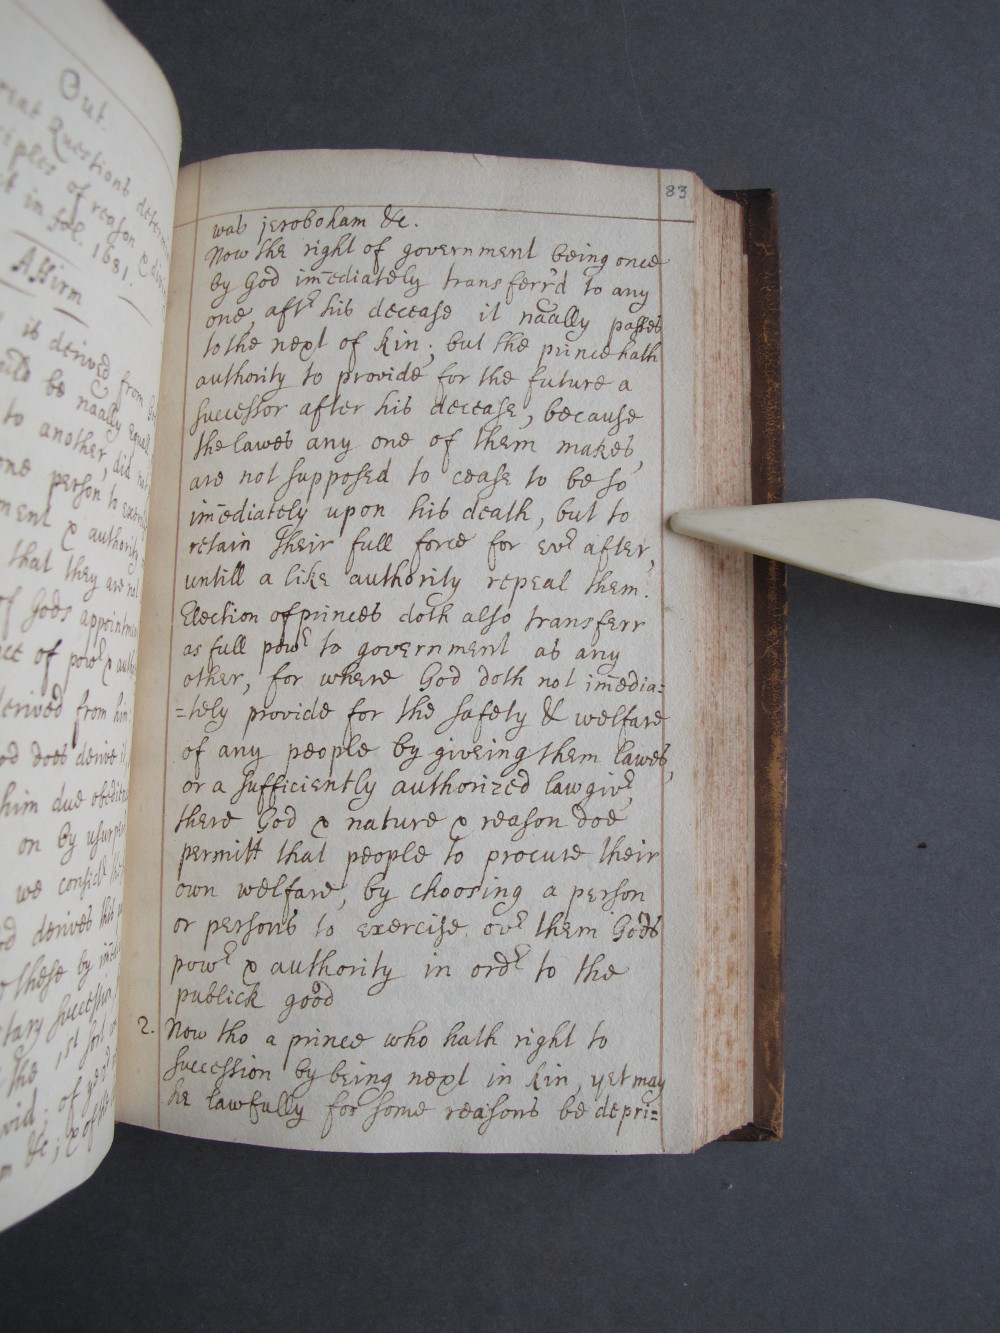 Out.
Questions
of reason &
in fol. 1681.
Affirm
it is derived from
be naâlly equall
to another, did not
one person to
& authority
that they are not
of Gods
of powr &
derived from him
does derive it
him due
on by
we
derives this
these by
successor
the 1st sort
of ye 2d
&c, & of the
83
was jeroboham &c.
Now the right of government being once
by God im̅ediately transferr'd to any
one, aftr his decease it naâlly passes
to the next of kin; but the prince hath
authority to provide for the future a
successor after his decease, because
the lawes any one of them makes,
are not supposed to cease to be so
im̅ediately upon his death, but to
retain their full force for evr after,
untill a like authority repeal them.
Election of princes doth also transferr
as full powr to government as any
other, for where God doth not im̅edia=
=tely provide for the safety & welfare
of any people by giveing them lawes,
or a sufficiently authorized lawgivr,
there God & nature & reason doe
permitt that people to procure their
own welfare, by choosing a person
or persons to exercise ovr them Gods
powr & authority in ordr to the
publick good
2. Now tho a prince who hath right to
succession by being next in kin, yet may
he lawfully for some reasons be depri=